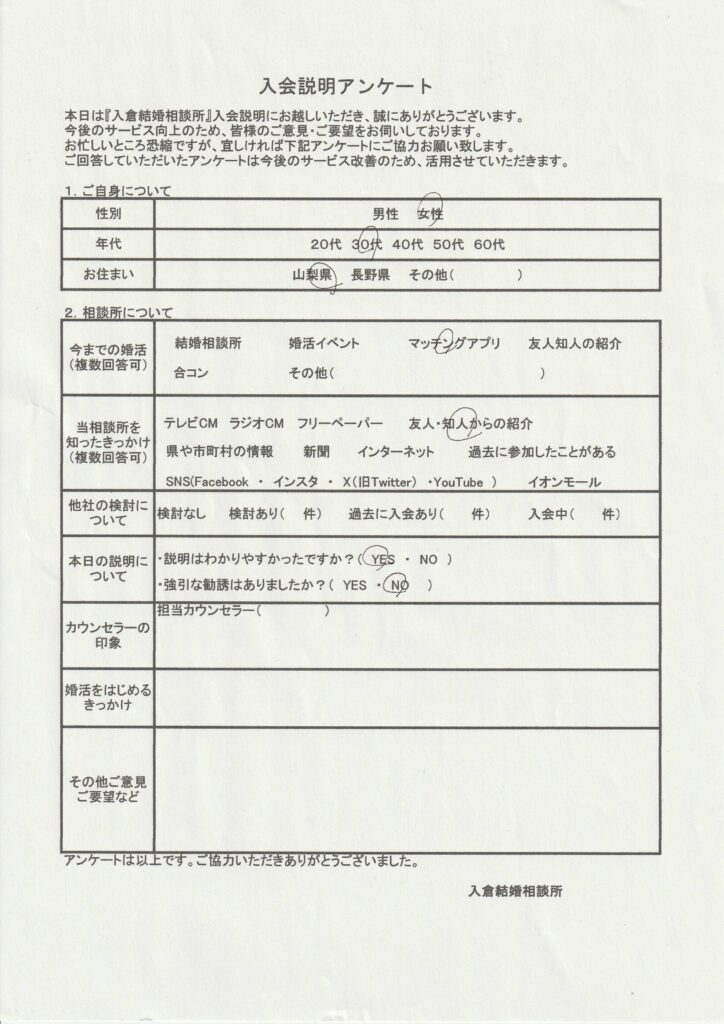 入会説明アンケート
本日は『入倉結婚相談所』入会説明にお越しいただき、誠にありがとうございます。
今後のサービス向上のため、皆様のご意見・ご要望をお伺いしております。
お忙しいところ恐縮ですが、宜しければ下記アンケートにご協力お願い致します。
ご回答していただいたアンケートは今後のサービス改善のため、活用させていただきます。
1. ご自身について
性別 男性 女性
年代 20代 30代 40代 50代 60代
お住まい 山梨県 長野県 その他( )
2. 相談所について
今までの婚活
(複数回答可)
結婚相談所 婚活イベント マッチングアプリ 友人知人の紹介
合コン その他( )
当相談所を
知ったきっかけ
(複数回答可)
テレビCM ラジオCM フリーペーパー 友人・知人からの紹介
県や市町村の情報 新聞 インターネット 過去に参加したことがある
SNS(Facebook ・ インスタ ・ X(旧Twitter) ・YouTube ) イオンモール
他社の検討に
ついて
検討なし 検討あり( 件) 過去に入会あり( 件) 入会中( 件)
本日の説明に
ついて
・説明はわかりやすかったですか?( YES ・ NO )
・強引な勧誘はありましたか?( YES ・ NO )
カウンセラーの
印象
担当カウンセラー( )
婚活をはじめる
きっかけ
その他ご意見
ご要望など
アンケートは以上です。ご協力いただきありがとうございました。
入倉結婚相談所